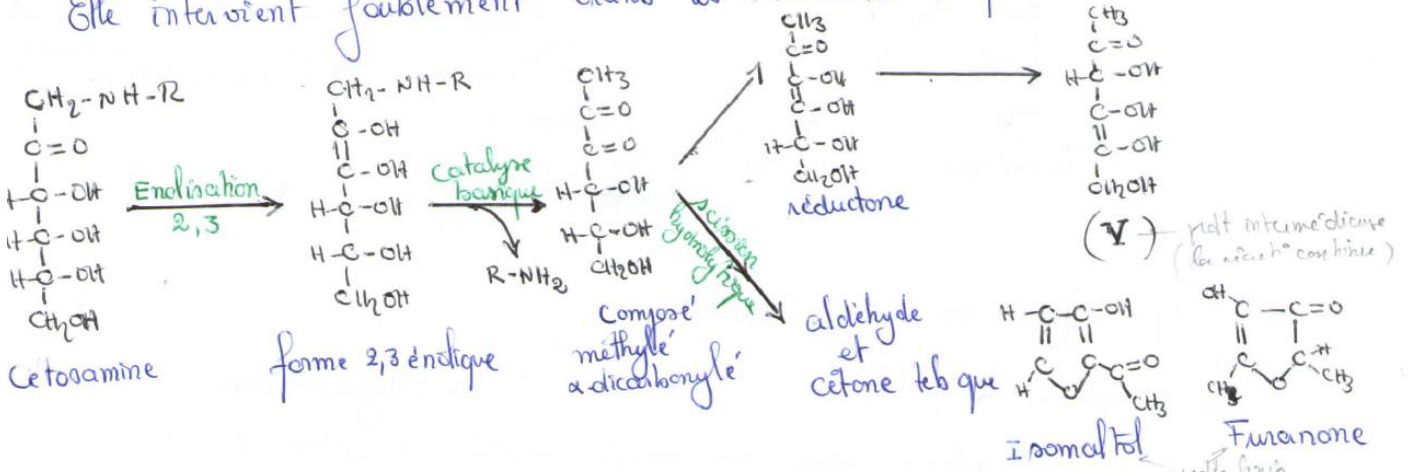 Elle intervient faiblement dans
CH2-NH-R
C=O
H-C-OH
H-C-OH
H-C-OH
CH2OH
Cétosamine
Enolisation
2,3
CH2-NH-R
C-OH
C-OH
H-C-OH
H-C-OH
CH2OH
forme 2,3 énolique
catalyse
basique
R-NH2
CH3
C=O
C=O
H-C-OH
H-C-OH
CH2OH
Composé
méthylé
α dicarbonylé
CH3
C=O
C-OH
C-OH
H-C-OH
CH2OH
réductone
CH3
C=O
H-C-OH
C-OH
C-OH
CH2OH
(V)
intermédiaire
continue)
scission
hydrolytique
aldéhyde
et
cétone tels que
H-C-C-OH
H C O C C=O
CH3
Isomaltol
OH C-C=O
C O C-H
CH3 CH3
Furanone